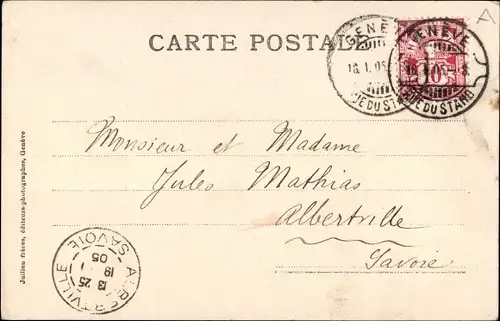 CARTE POSTALE
GENÈVE
18.1.05
RUE DU STAND
GENÈVE
18.1.05-8
RUE DU STAND
10
Monsieur et Madame
Jules Mathias
Albertville
Savoie
ALBERTVILLE
SAVOIE
13 25
19
05
Jullien frères, éditeurs-photographes, Genève
A